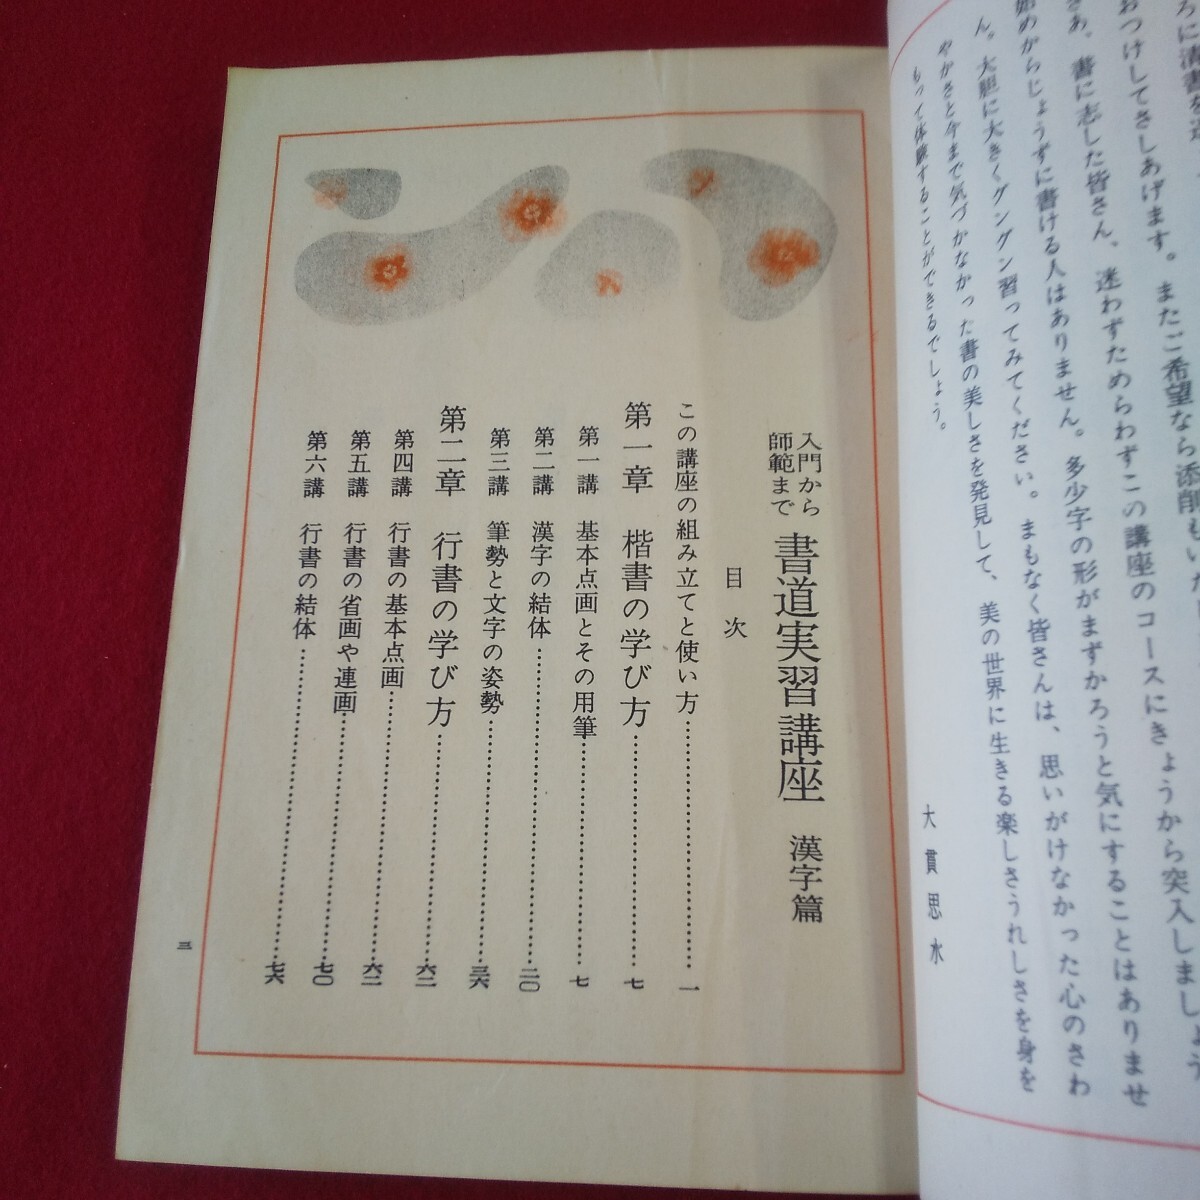 ろに清書を
おつけしてさしあげます。またご希望なら添削もい
さあ、書に志した皆さん、迷わずためらわずこの講座のコースにきょうから突入しましょう
始めからじょうずに書ける人はありません。多少字の形がまずかろうと気にすることはありませ
ん。大胆に大きくグングン習ってみてください。まもなく皆さんは、思いがけなかった心のさわ
やかさと今まで気づかなかった書の美しさを発見して、美の世界に生きる楽しさうれしさを身を
もって体験することができるでしょう。
大貫思水
入門から
師範まで
書道実習講座 漢字篇
目次
この講座の組み立てと使い方……………一
第一章 楷書の学び方……………七
第一講 基本点画とその用筆……………七
第二講 漢字の結体……………二〇
第三講 筆勢と文字の姿勢……………三六
第二章 行書の学び方……………六二
第四講 行書の基本点画……………六二
第五講 行書の省画や連画……………七〇
第六講 行書の結体……………七六
三